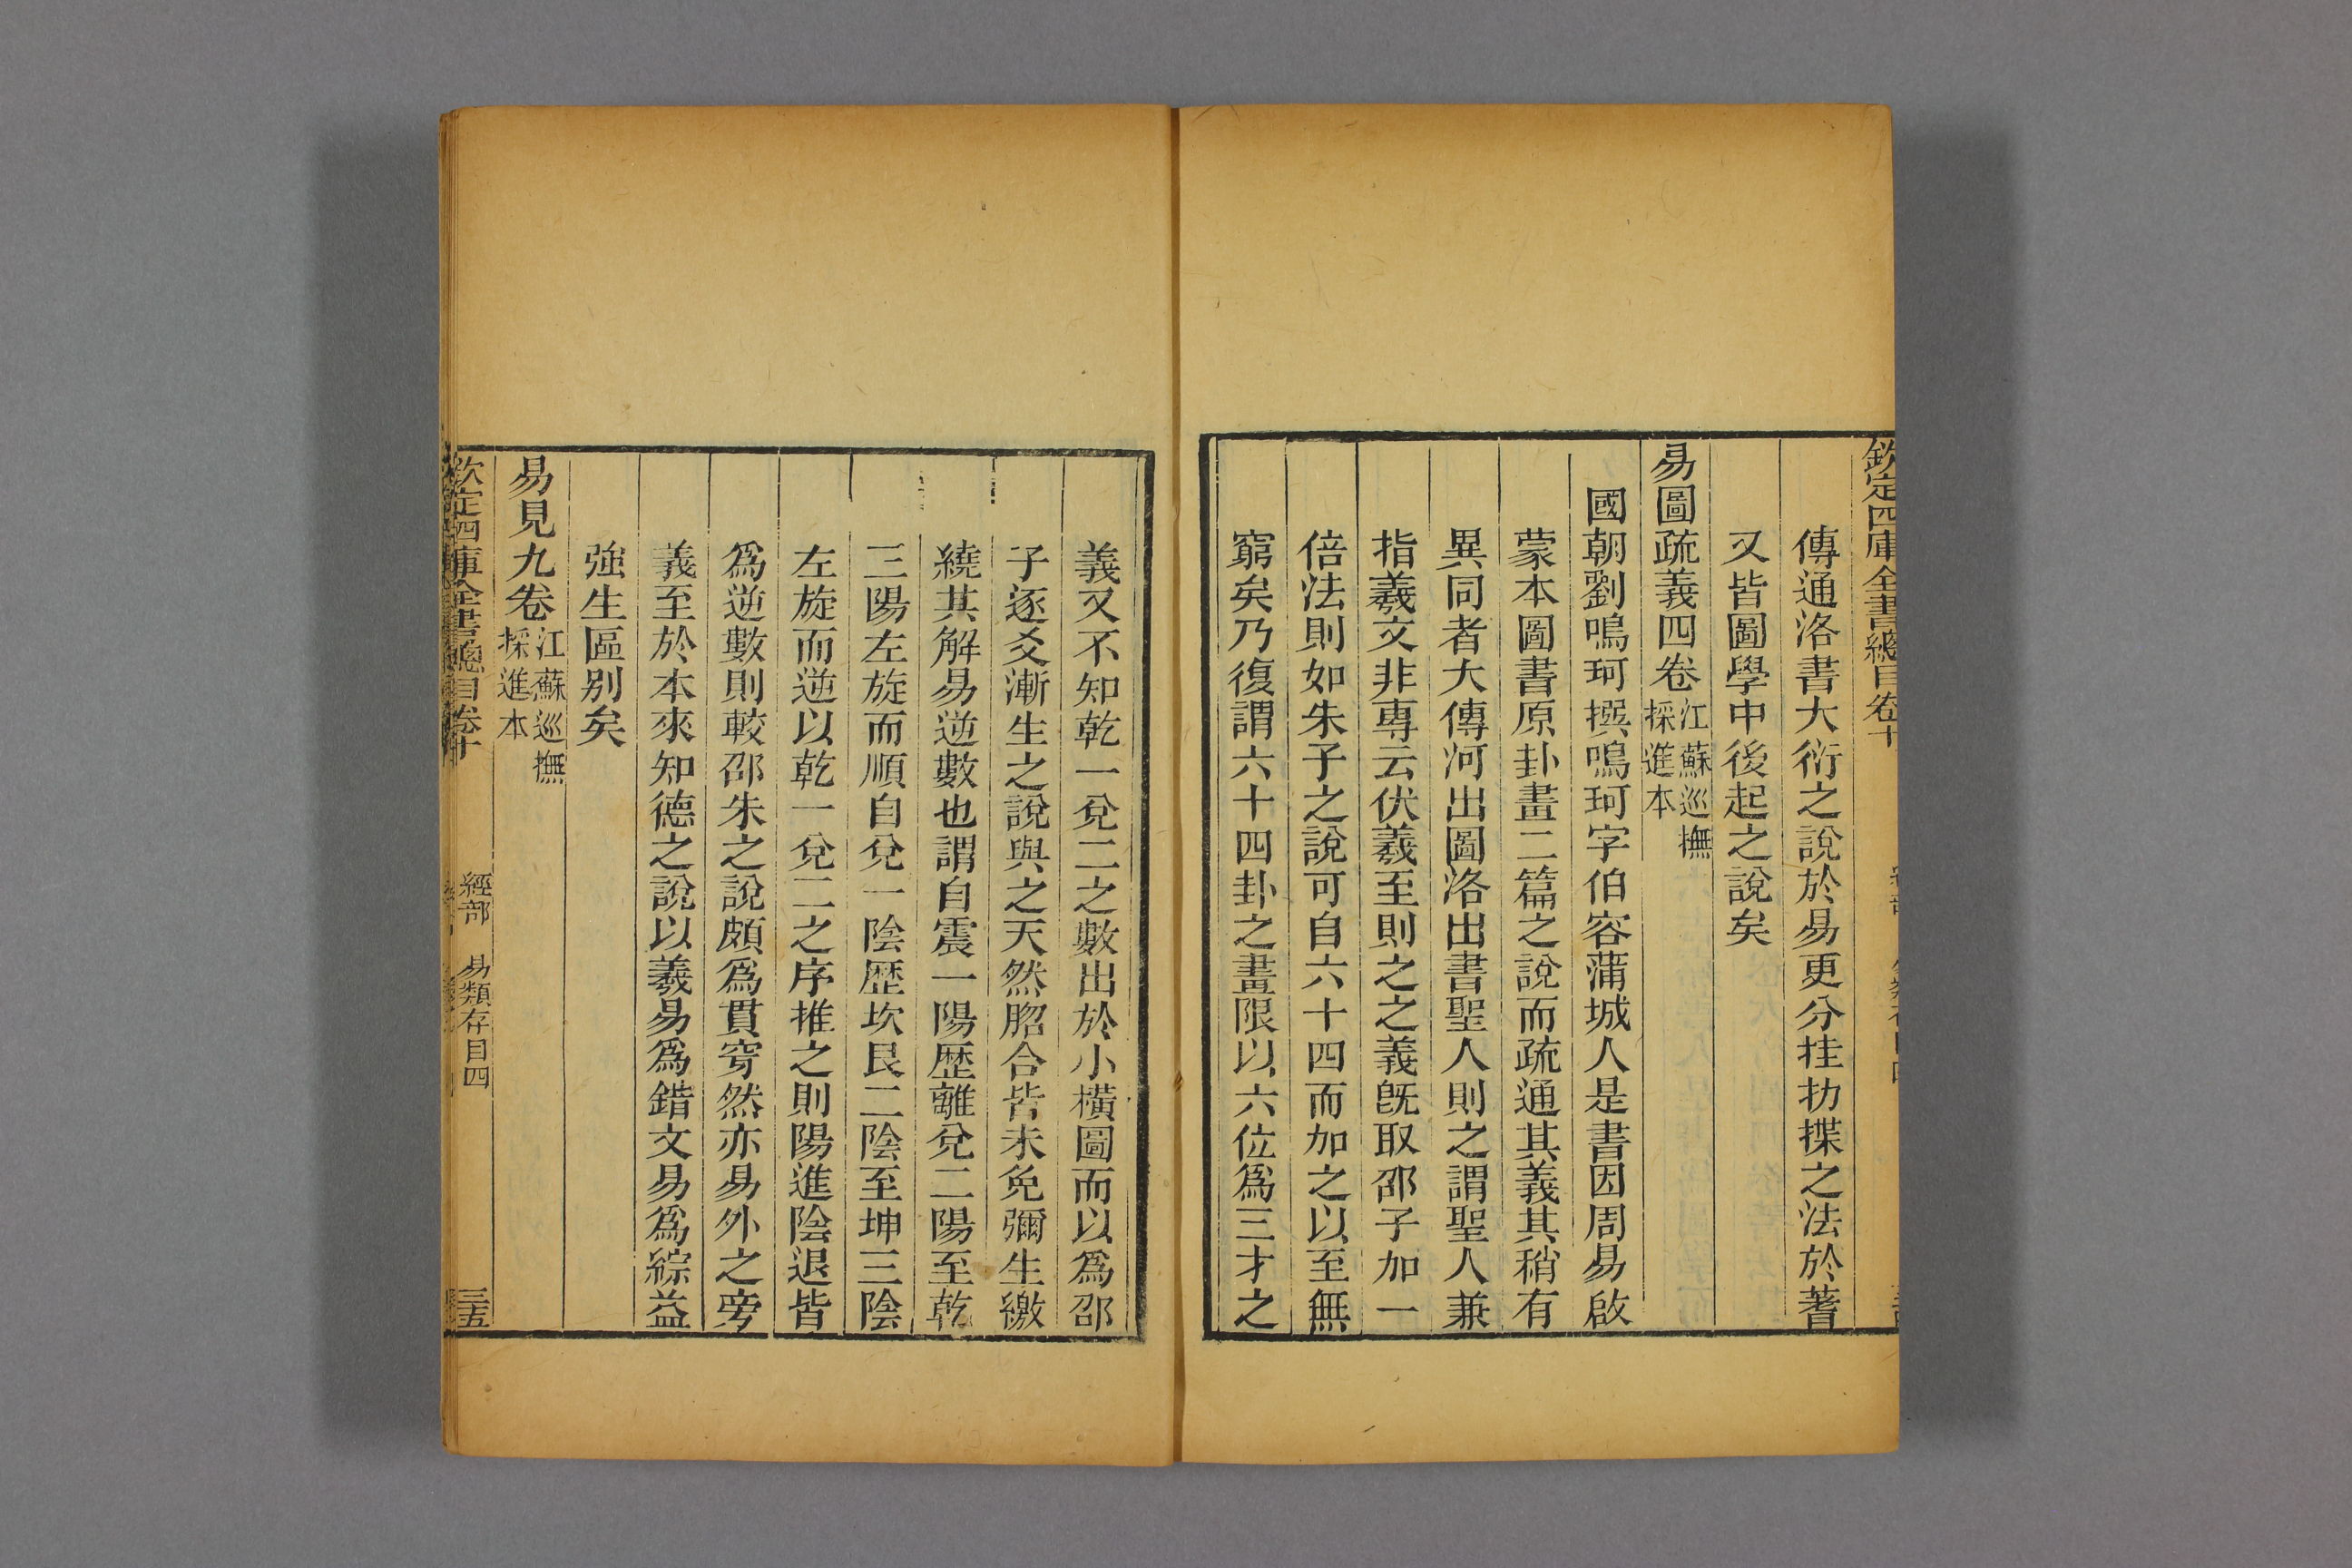 欽定四庫全書總目卷十
傳通洛書大衍之說於易更分挂扐揲之法於蓍
又皆圖學中後起之說矣
易圖疏義四卷江蘇巡撫採進本
國朝劉鳴珂撰鳴珂字伯容蒲城人是書因周易啟
蒙本圖書原卦畫二篇之說而疏通其義其稍有
異同者大傳河出圖洛出書聖人則之謂聖人兼
指羲文非專云伏羲至則之之義旣取邵子加一
倍法則如朱子之說可自六十四而加之以至無
窮矣乃復謂六十四卦之畫限以六位爲三才之
義又不知乾一兌二之數出於小橫圖而以爲邵
子逐爻漸生之說與之天然脗合皆未免彌生繳
繞其解易逆數也謂自震一陽歷離兌二陽至乾
三陽左旋而順自兌一陰歷坎艮二陰至坤三陰
左旋而逆以乾一兌二之序推之則陽進陰退皆
爲逆數則較邵朱之說頗爲貫穿然亦易外之旁
義至於本來知德之說以羲易爲錯文易爲綜益
強生區別矣
易見九卷江蘇巡撫採進本
欽定四庫全書總目卷十
經部 易類存目四
三五